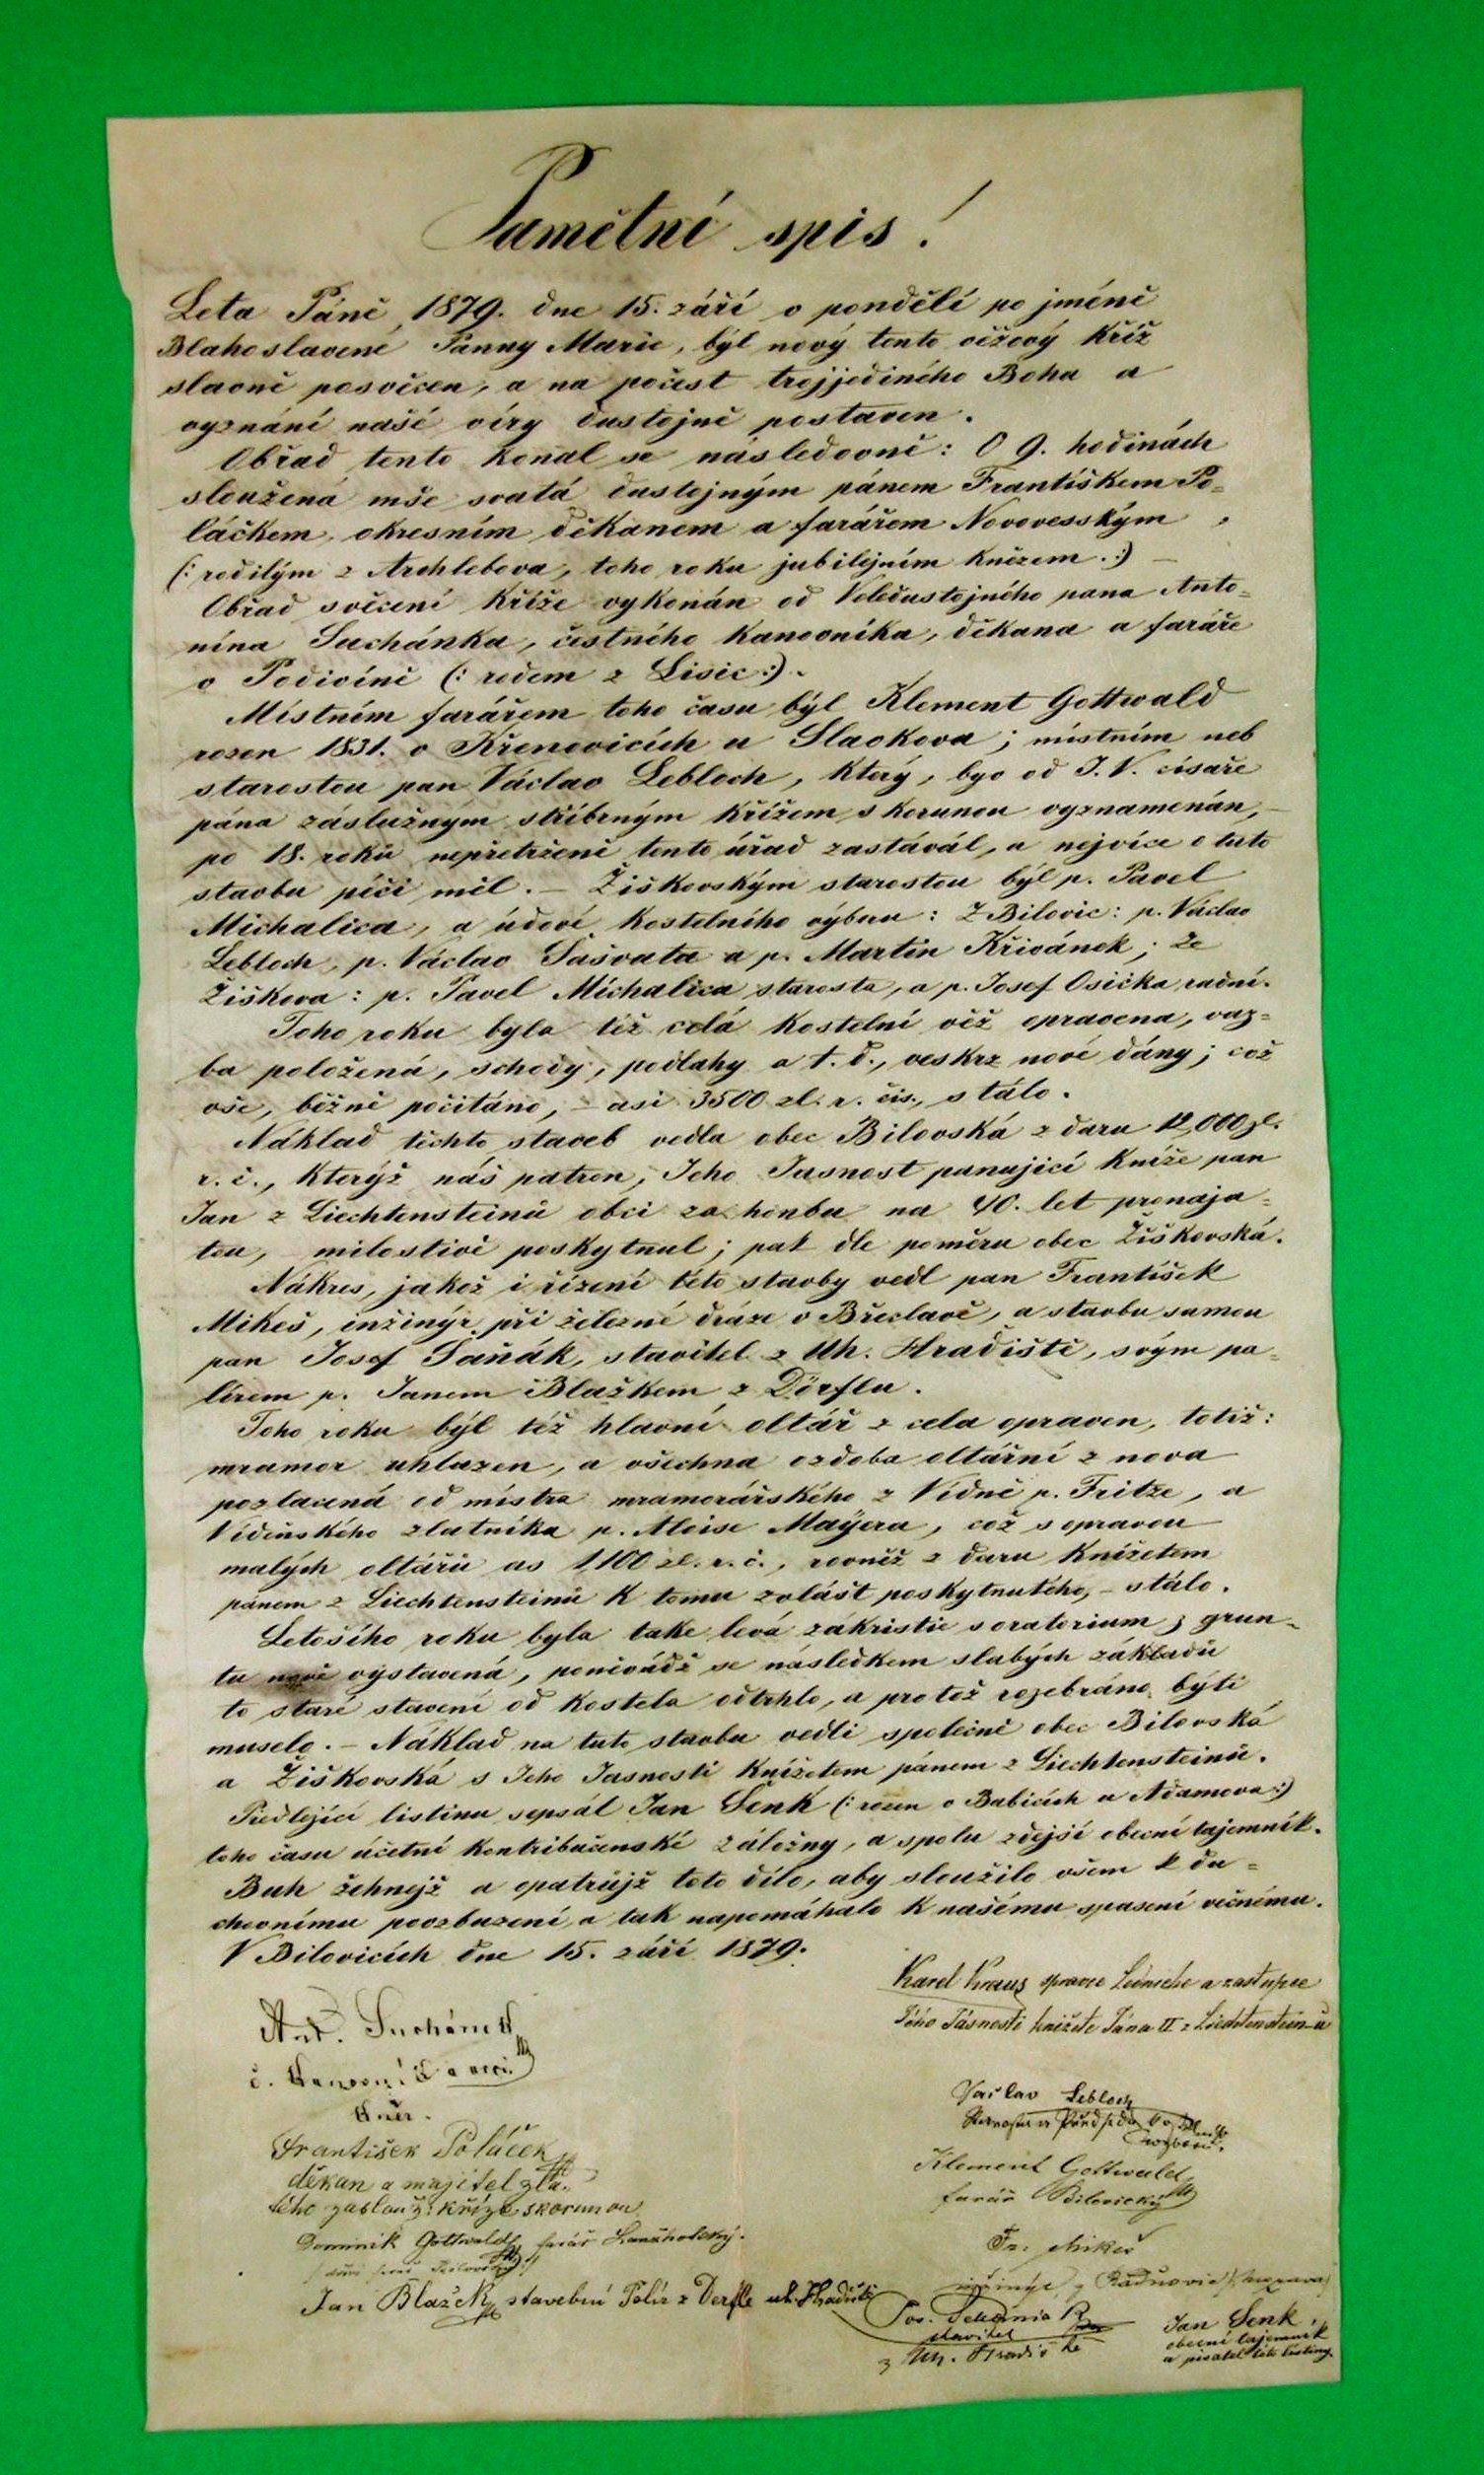 Pamětní spis!
Leta Páně 1879. dne 15. září v pondělí po jméně
Blahoslavené Panny Marie, býl nový tento věžový kříž
slavně posvěcen, a na počest trojjediného Boha a
vyznání naší víry dustojně postaven.
Obřad tento konal se následovně: O 9. hodinách
sloužená mše svatá dustojným pánem Františkem Po=
láčkem, okresním děkanem a farářem Novovesským,
(: rodilým z Archlebova, toho roku jubilejním knězem :) —
Obřad svěcení kříže vykonán od Veledustojného pana Anto=
nína Suchánka, čestného kanovníka, děkana a faráře
v Podivíně (: rodem z Lisic :).
Místním farářem toho času býl Klement Gottwald
rozen 1831. v Křenovicích u Slavkova; místním neb
starostou pan Václav Lebloch, který, byv od J. V. císaře
pána záslužným stříbrným křížem s korunou vyznamenán,
po 18. roků nepřetrženě tento úřad zastával, a nejvíce o tuto
stavbu péči měl. — Žiškovským starostou býl p. Pavel
Michalica, a údové kostelního výboru: Z Bilovic: p. Václav
Lebloch, p. Václav Sašvata a p. Martin Křivánek; ze
Žiškova: p. Pavel Michalica starosta, a p. Josef Osička radní.
Toho roku byla též celá kostelní věž opravena, vaz=
ba položená, schody, podlahy a t. d., veskrz nové dány; což
vše, běžně počítáno, – asi 3500 zl. r. čis., stálo.
Náklad těchto staveb vedla obec Bilovská z daru 12,000 zl.
r. č., kterýž náš patron, Jeho Jasnost panující kníže pan
Jan z Liechtensteinů obci za honbu na 40. let pronaja=
tou, milostivě poskytnul; pak dle poměru obec Žiškovská.
Nákres, jakož i řízení této stavby vedl pan František
Mikeš, inžinýr při železné dráze v Břeclavě, a stavbu samou
pan Josef Šaňák, stavitel z Uh. Hradiště, svým pa=
lírem p. Janem Blažkem z Dörflu.
Toho roku býl též hlavní oltář z cela opraven, totiž:
mramor uhlazen, a všechna ozdoba oltářní z nova
pozlacená od místra mramorářského z Vídně p. Fritze, a
Vídeňského zlatníka p. Aloise Maÿera, což s opravou
malých oltářů as 1,100 zl. r. č., rovněž z daru knížetem
pánem z Liechtensteinů k tomu zvlášt poskytnutého, – stálo.
Letošího roku byla take levá zákristie s oratorium z grun=
tu nově výstavená, poněvádž se následkem slabých základů
to staré stavení od kostela odtrhlo, a protož rozebráno býti
muselo. – Náklad na tuto stavbu vedli společně obec Bilovská
a Žiškovská s Jeho Jasností knížetem pánem z Liechtensteinů.
Předlející listinu sepsál Jan Šenk (: rozen v Babicích u Adamova :)
toho času účetní kontribučenské záložny, a spolu zdejší obecní tajemník.
Buh žehnejž a opatrůjž toto dílo, aby sloužilo všem k du=
chovnímu povzbuzení, a tak napomáhalo k našému spasení věčnému.
V Bilovicích dne 15. září 1879.
Karel Kraus správce Lednické a zastupce
Jého Jásnosti knižete Jána II z Liechtenstein-ů
Ant. Suchánek
č. kanovník a arci
kněz.
Václav Lebloch
Starosta a Předseda
František Poláček
děkan a majitel zla=
tého zaslouž: kříže s korunou
Klement Gottwald
farář Bilovický
Dominik Gottwald, farář Lanžhotský.
Fr. Mikeš
inžinýr z
Jan Blažek stavební Polír z Derfle uh. Hradiště
Jos.
stavitel
z Uh. Hradiště
Jan Šenk,
obecní tajemník
a pisatel této listiny.